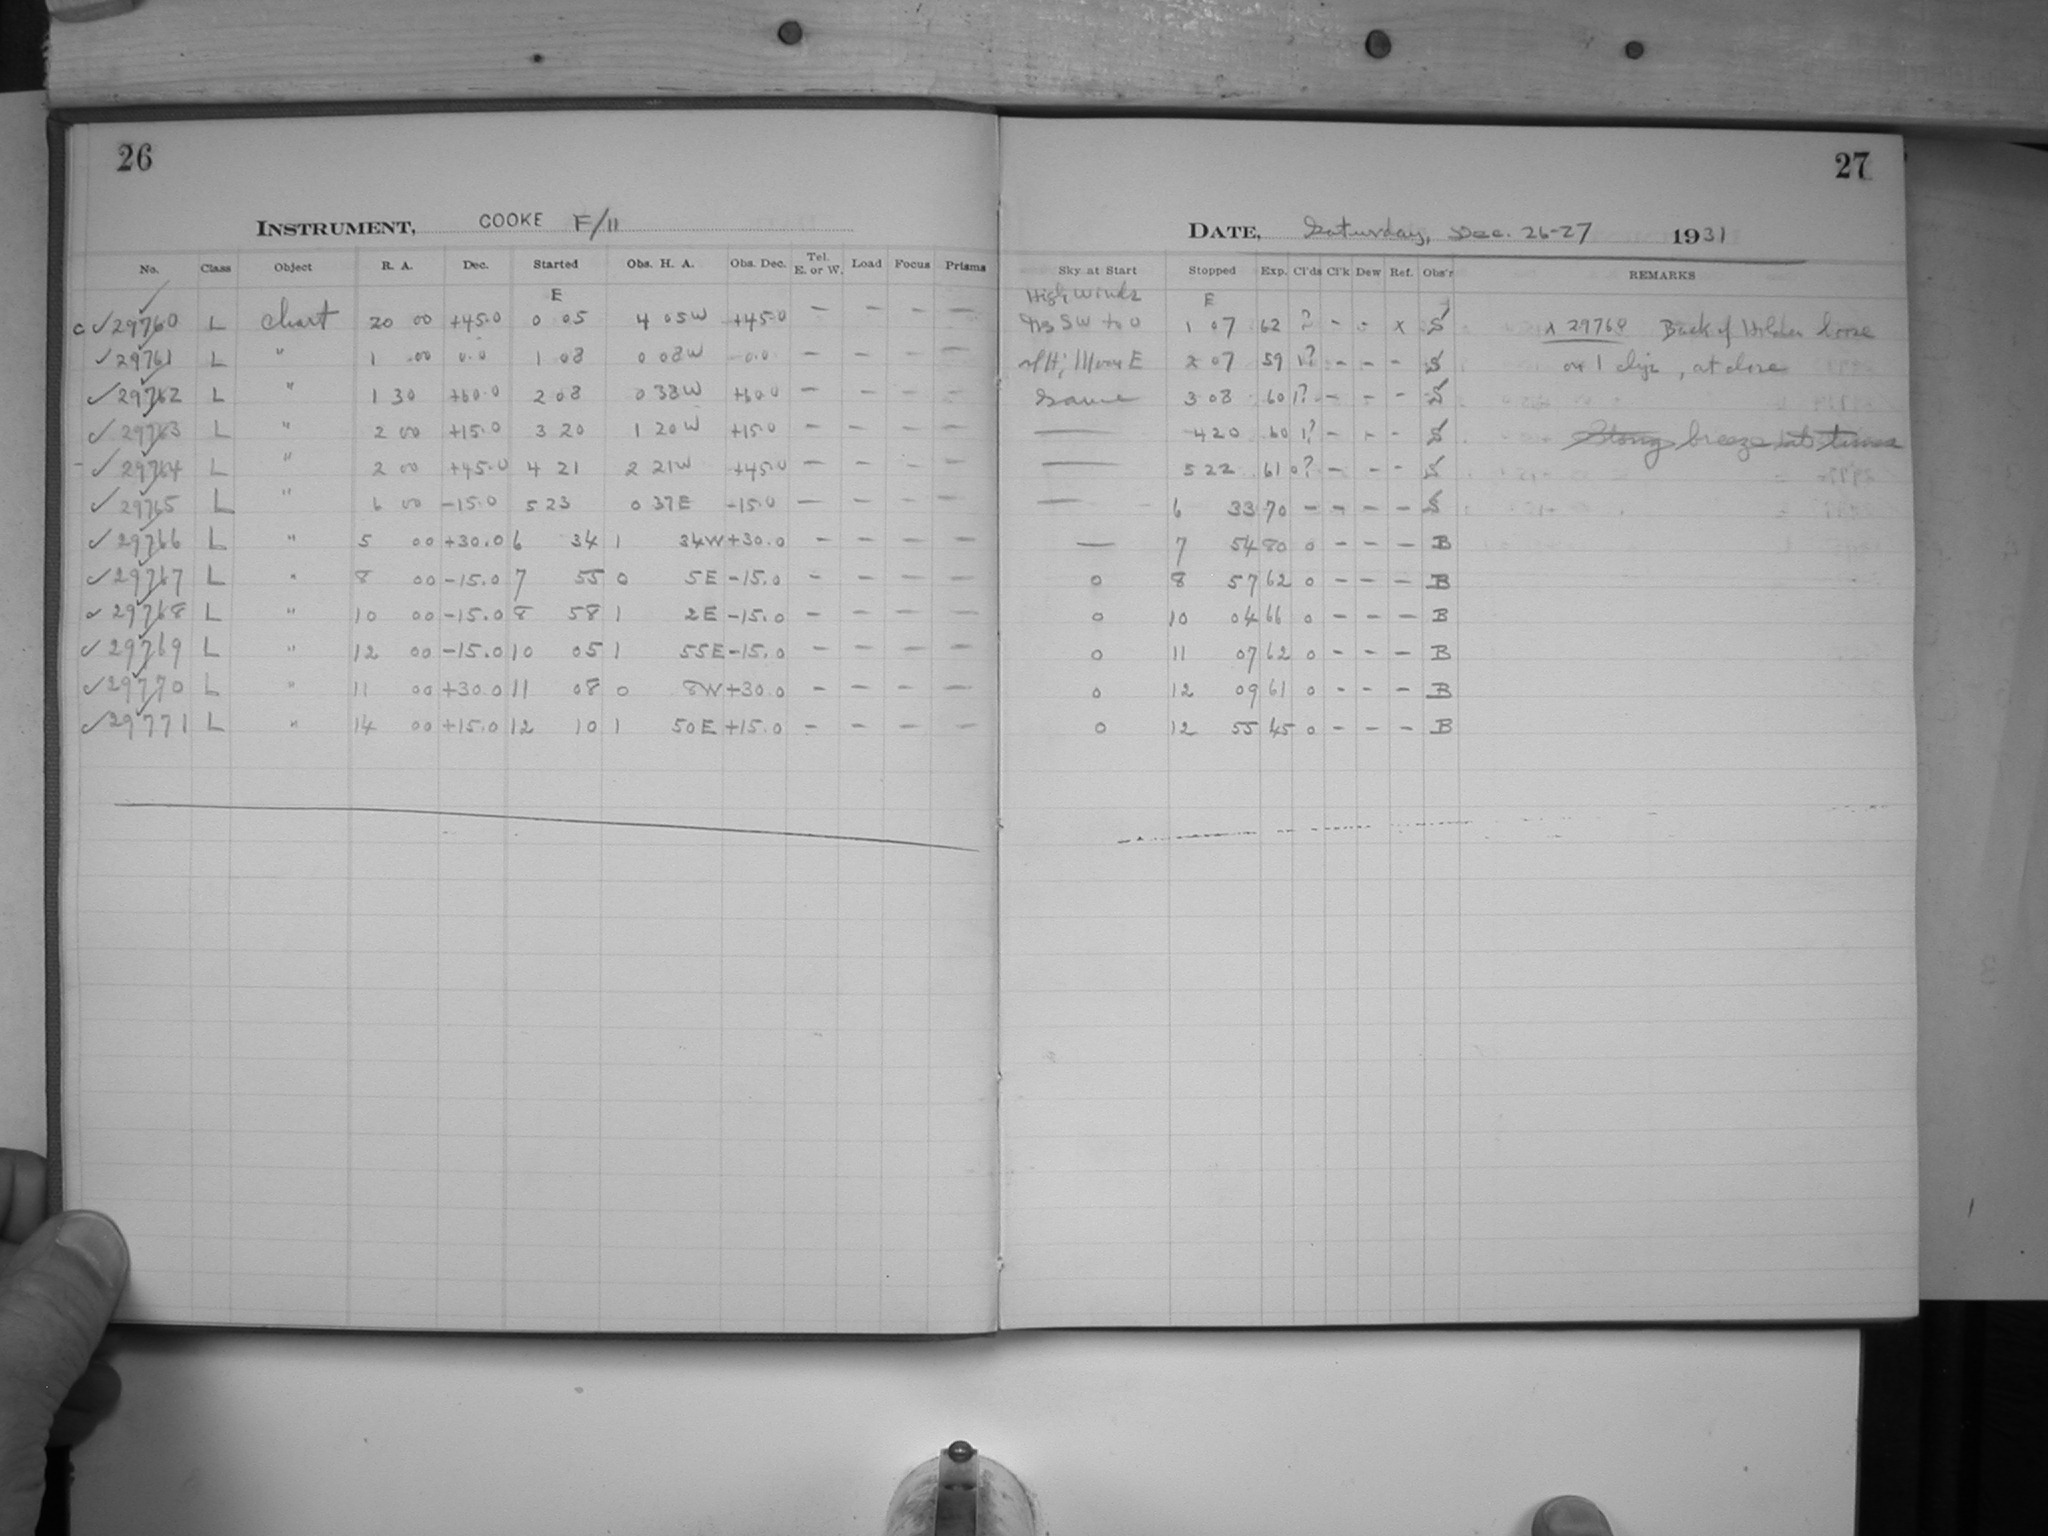 26
INSTRUMENT, COOKE F/11
No. Class Object R. A. Dec. Started Obs. H. A. Obs. Dec. Tel. E. or W. Load Focus Prisms
E
c ✓ 29760 L Chart 20 00 +45.0 0 05 4 05W +45.0 — — — —
✓ 29761 L " 1 00 0.0 1 08 0 08W 0.0 — — — —
✓ 29762 L " 1 30 +60.0 2 08 0 38W +60.0 — — — —
✓ 29763 L " 2 00 +15.0 3 20 1 20W +15.0 — — — —
- ✓ 29764 L " 2 00 +45.0 4 21 2 21W +45.0 — — — —
✓ 29765 L " 6 00 -15.0 5 23 0 37E -15.0 — — — —
✓ 29766 L " 5 00 +30.0 6 34 1 34W +30.0 — — — —
✓ 29767 L " 8 00 -15.0 7 55 0 5E -15.0 — — — —
✓ 29768 L " 10 00 -15.0 8 58 1 2E -15.0 — — — —
✓ 29769 L " 12 00 -15.0 10 05 1 55E -15.0 — — — —
✓ 29770 L " 11 00 +30.0 11 08 0 8W +30.0 — — — —
✓ 29771 L " 14 00 +15.0 12 10 1 50E +15.0 — — — —
27
DATE, Saturday, Dec. 26-27 1931
Sky at Start Stopped Exp. Cl'ds Cl'k Dew Ref. Obs'r REMARKS
High Winds E
SW to 0 1 07 62 ? - - x S x 29760 Back of Holder loose
Moon E 2 07 59 1? - - - S on 1 clip, at close
Same 3 08 60 1? - - - S
— 4 20 60 1? - - - S Strong breeze at times
— 5 22 61 0? - - - S
— 6 33 70 - - - - S
— 7 54 80 0 - - - B
0 8 57 62 0 - - - B
0 10 04 66 0 - - - B
0 11 07 62 0 - - - B
0 12 09 61 0 - - - B
0 12 55 45 0 - - - B